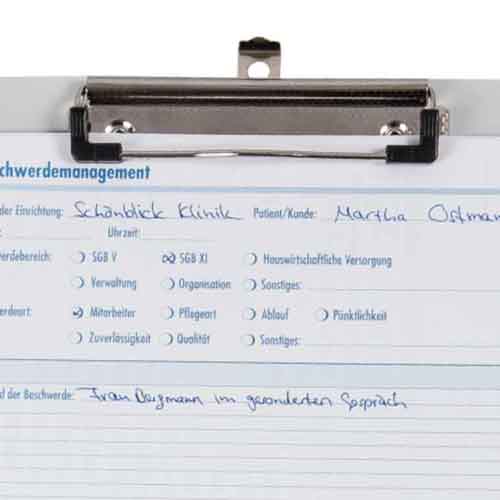 chwerdemanagement
der Einrichtung: Schönblick Klinik Patient/Kunde: Martha Ostman
Uhrzeit:
erdebereich: SGB V SGB XI Hauswirtschaftliche Versorgung
Verwaltung Organisation Sonstiges:
erdeart: Mitarbeiter Pflegeart Ablauf Pünktlichkeit
Zuverlässigkeit Qualität Sonstiges:
d der Beschwerde: Frau Bergmann im gesonderten Gespräch